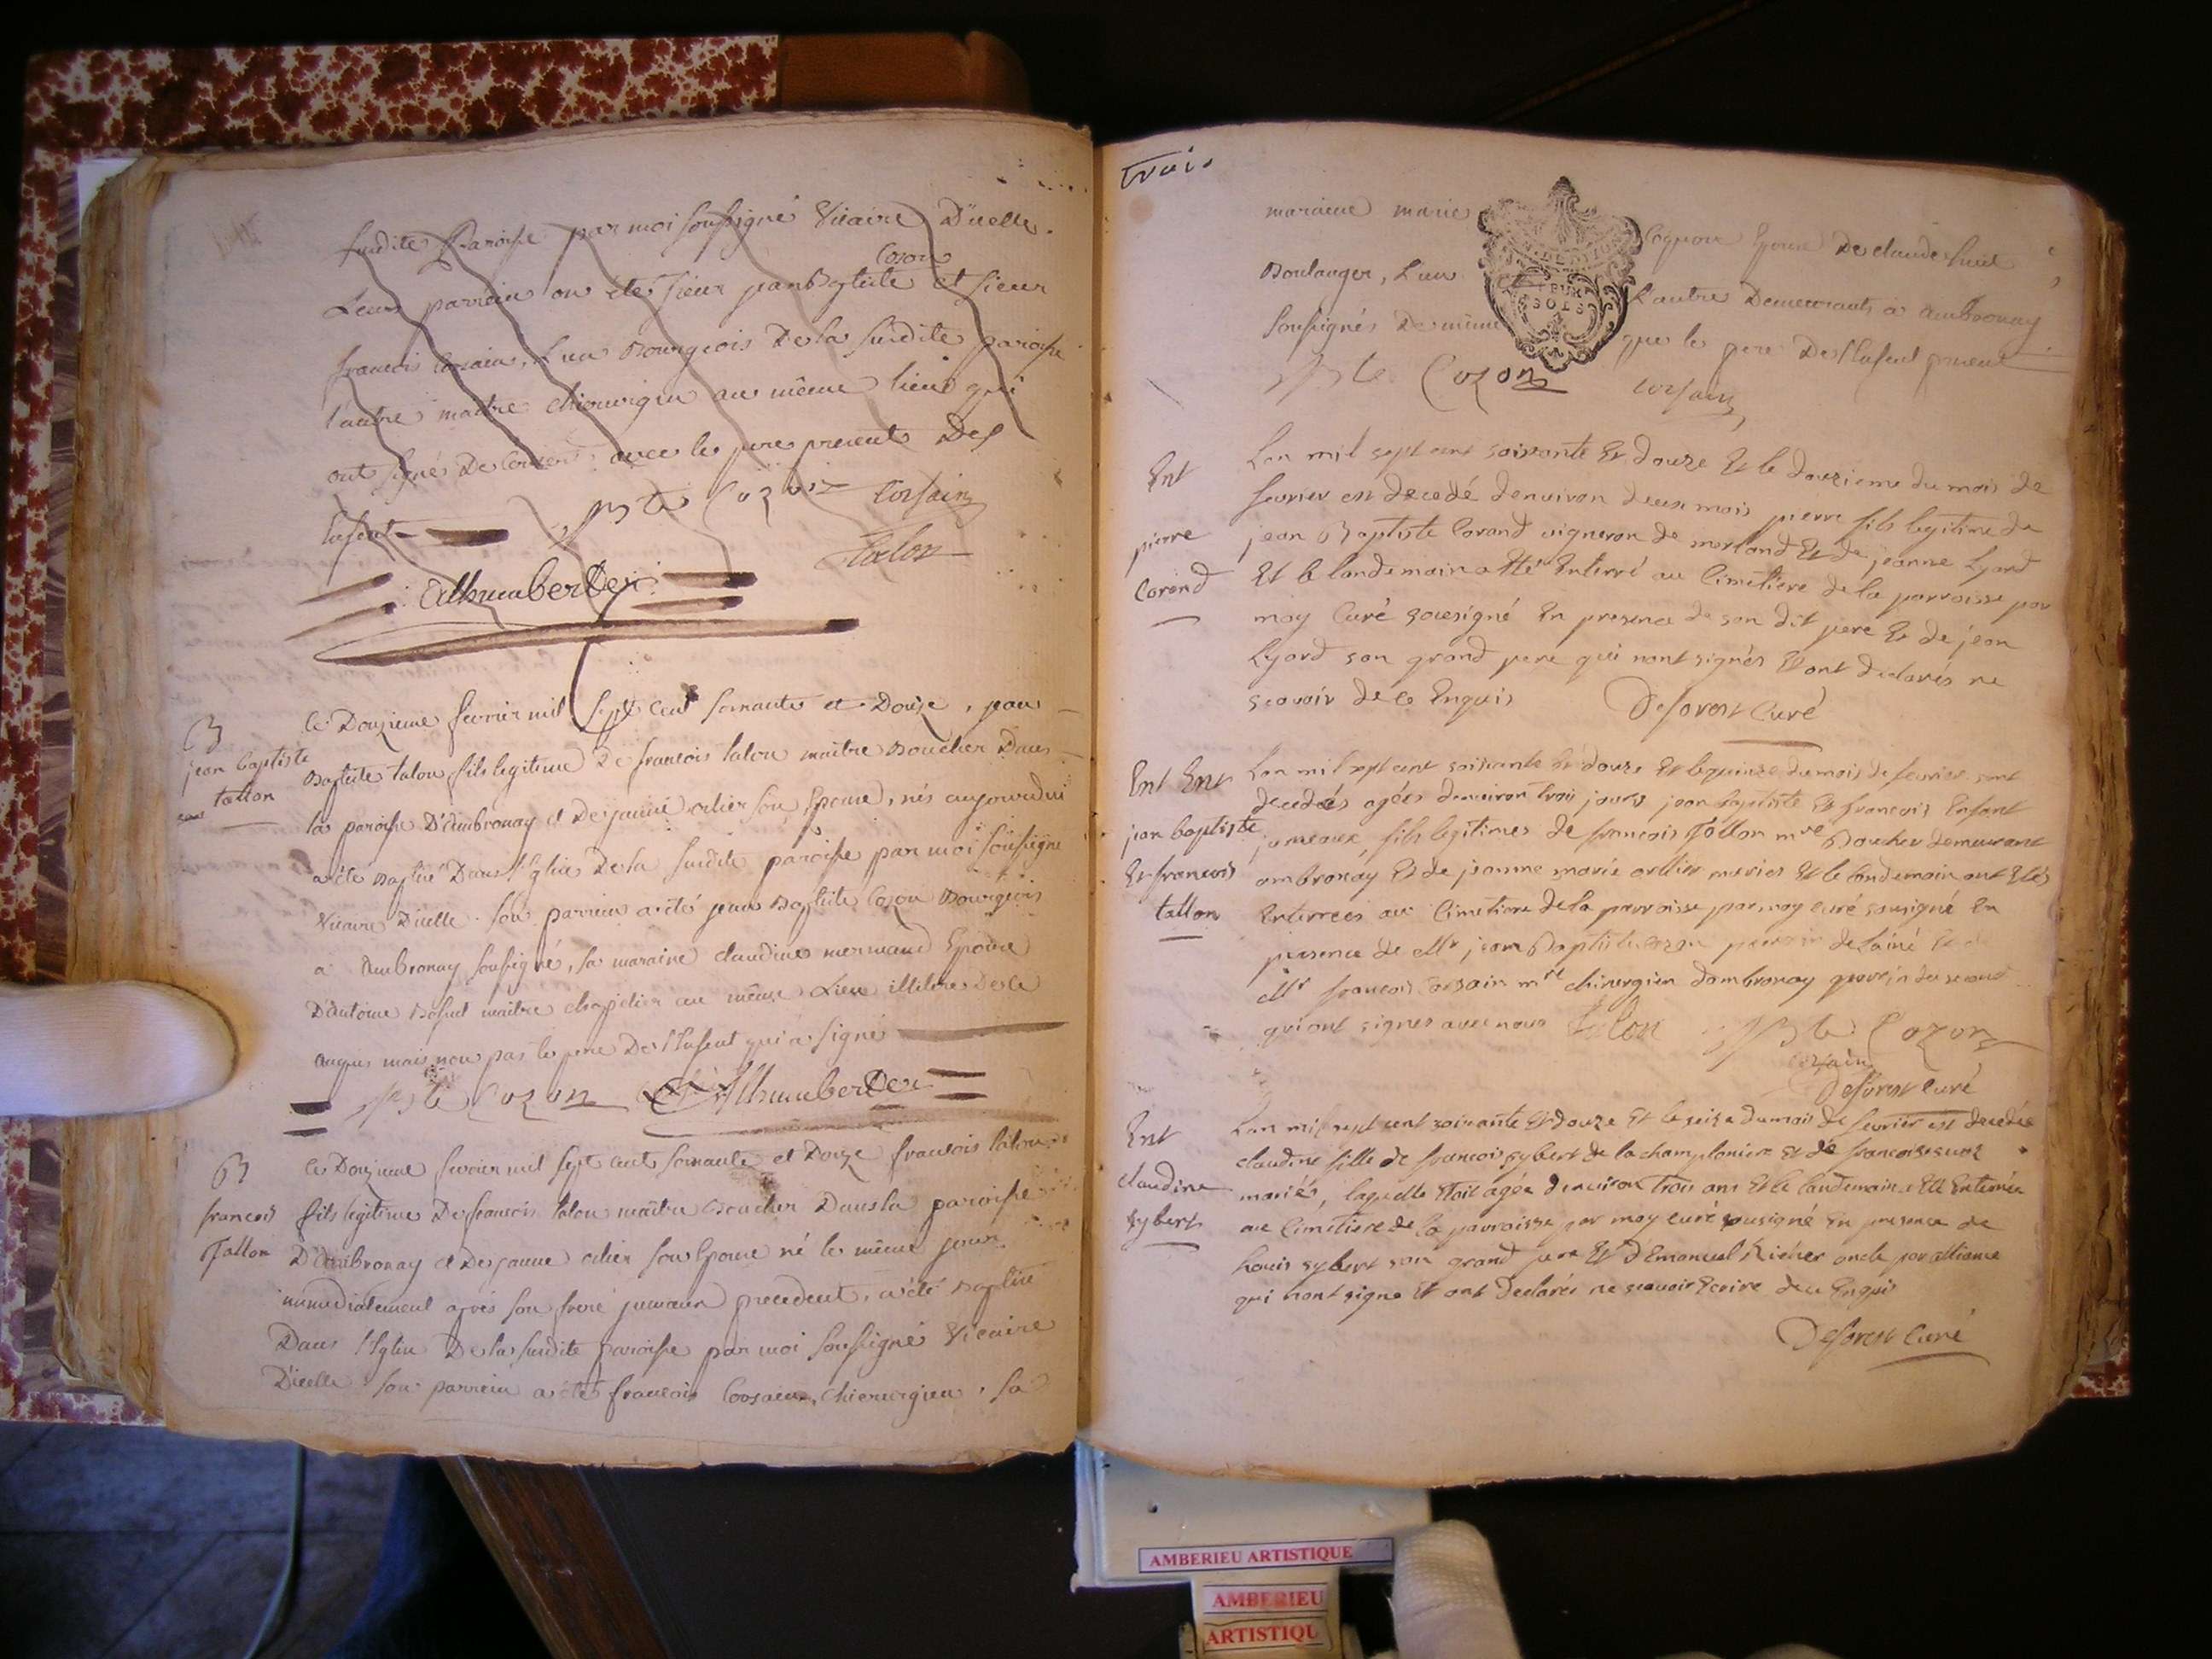 susdite Paroisse par moi soussigné Vicaire D'icelle.
Cozon
Leurs parrein on été sieur jean Baptiste et sieur
francois Corsain, L'un Bourgeois De la susdite paroisse
l'autre maitre chirurgien au même lieu qui
ont signés De avec le pere present Des
Enfent
JB te Cozon Corsain
talon
Alhumberdet
B
jean baptiste
tallon
Le Douzieme fevrier mil sept cent soixante et Douze, jean
Baptiste talon fils legitime De francois talon maître Boucher Dans
la paroisse D'Ambronay et De jeanne orlier son Epouse, nés aujourdhui
a été Baptisé Dans l'Eglise De la susdite paroisse par moi soussigné
Vicaire D'icelle. son parrein a été jean Baptiste Cozon Bourgeois
a Ambronay soussigné, sa maraine claudine mermand Epouse
D'antoine maitre chapelier au même Lieu illitere De ce
enquis mais non pas le pere De l'Enfent qui a signé
JB te Cozon Alhumberdet
B
francois
Tallon
Le Douzieme fevrier mil sept cent soixante et Douze francois talon
fils legitime De francois talon maître Boucher Dans la paroisse
D'Ambronay et De jeanne orlier son Epouse né le même jour
immediatement aprés son frere jumeau precedent, a été Baptisé
Dans l'Eglise De la susdite paroisse par moi soussigné Vicaire
D'icelle. son parrein a été francois Corsain, chirurgien, sa
trois
maraine marie Epouse De claude
Boulanger, L'un et l'autre Demeurants a Ambronay
soussignés De même que le pere De l'Enfent present
JB te Cozon Corsain
Ent
pierre
Corand
Lan mil sept cent soixante Et douze Et le douzieme du mois de
fevrier est decedé denviron deux mois pierre fils legitime de
jean Baptiste Corand vigneron de merland Et de jeanne Lyard
Et le landemain a Eté Enterré au Cimetiere de la parroisse par
moy Curé sousigné En presence de son dit pere Et de jean
Lyard son grand pere qui nont signés Et ont declarés ne
scavoir de ce Enquis Deforest Curé
Ent Ent
jean baptiste
Et francois
tallon
Lan mil sept cent soixante Et douze Et le quinze du mois de fevrier sont
decedés agées denviron trois jours jean baptiste Et francois Enfant
jumeaux, fils legitimes de francois Tallon mtre Boucher demeurant
ambronay Et de jeanne marie orllier mariés Et le landemain ont Etés
Enterrees au Cimetiere de la parroisse par moy curé sousigné En
presence de Mr jean Baptiste cozon parrain de lainé Et de
Mr francois Corsain mre chirurgien dambronay parrein du second
qui ont signes avec nous talon JB te Cozon
Corsain
Deforest Curé
Ent
claudine
sybert
Lan mil sept cent soixante Et douze Et le seize du mois de fevrier est decedée
claudine fille de francois sybert de la championiere Et de francoise
mariés, laquelle Etoit agée denviron trois ans Et le landemain a Eté Enterrée
au Cimetiere de la parroisse par moy curé sousigné En presence de
Louis sybert son grand pere Et d'Emanuel oncle par alliance
qui nont signe Et ont declarés ne scavoir Ecrire de ce Enquis
Deforest Curé
AMBERIEU ARTISTIQUE
AMBERIEU
ARTISTIQU